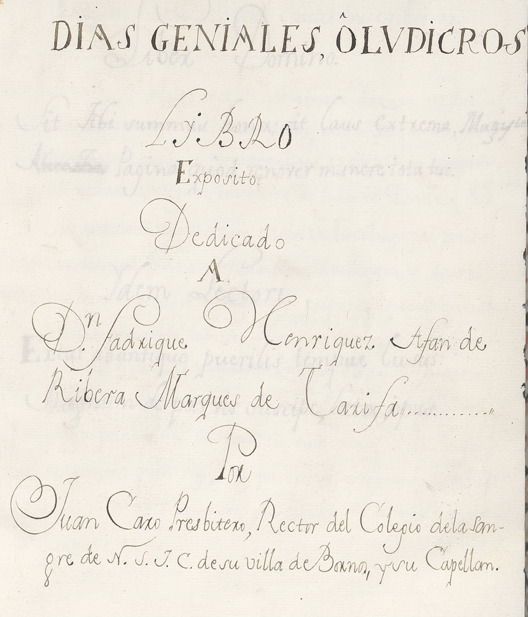 DIAS GENIALES, ÔLVDICROS
LIBRO
Exposito.
Dedicado
A
D.n fadrique Henriquez Afan de
Ribera Marques de Tarifa............
Por
Juan Caro Presbitero, Rector del Colegio dela san-
gre de N. S. J. C. de su villa de Bornos, y su Capellan.